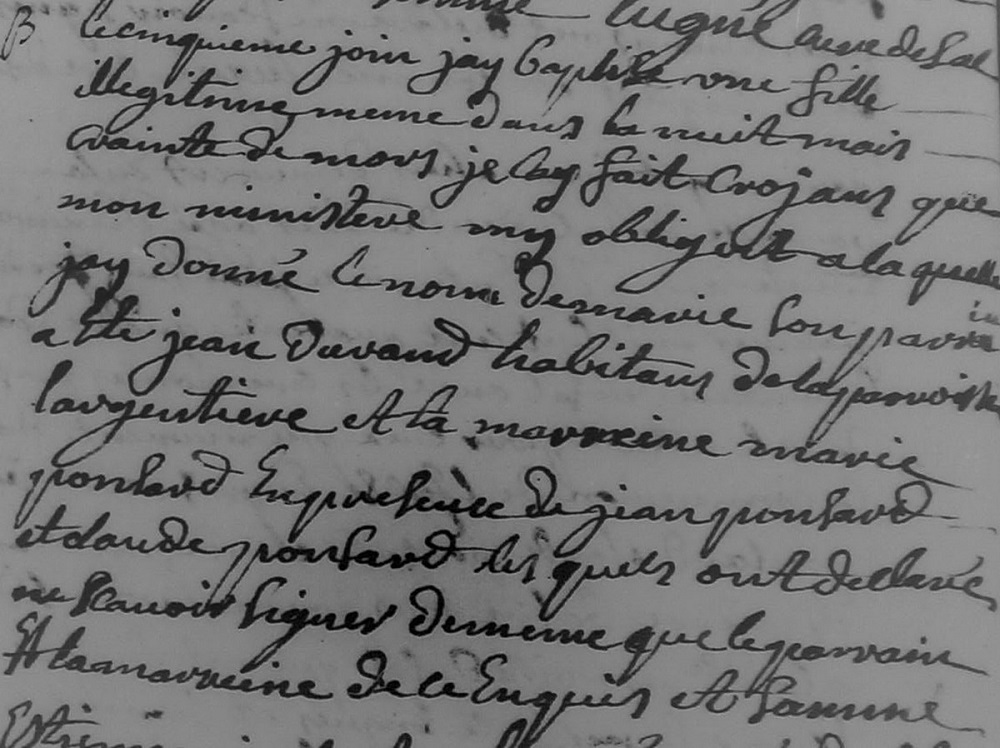 Lugné curé de Sal
B
lecinquieme join jay baptisé une fille
illegitime meme dans la nuit mais
crainte de mors je lay fait crojans que
mon ministere my obligeoit a la quelle
jay donné le nom de marie son parra
in
a été jean Durand habitans de la paroisse
largentiere et la marreine marie
ponsard En presence de jean ponsard
et claude ponsard les quels ont declaré
ne scauoir signer de meme que le parrain
et la marreine de ce Enquis et Somme